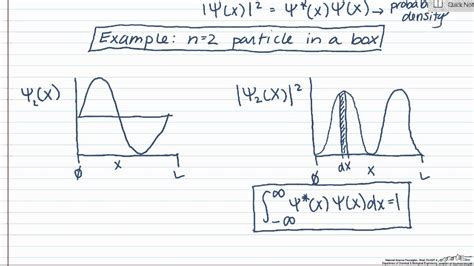 |Ψ(x)|² = Ψ*(x)Ψ(x) → probabi
density
Quick Not
Example: n=2 particle in a box
Ψ₂(x)
0 x L
|Ψ₂(x)|²
0 dx x L
∫_{-∞}^{∞} Ψ*(x) Ψ(x)dx = 1